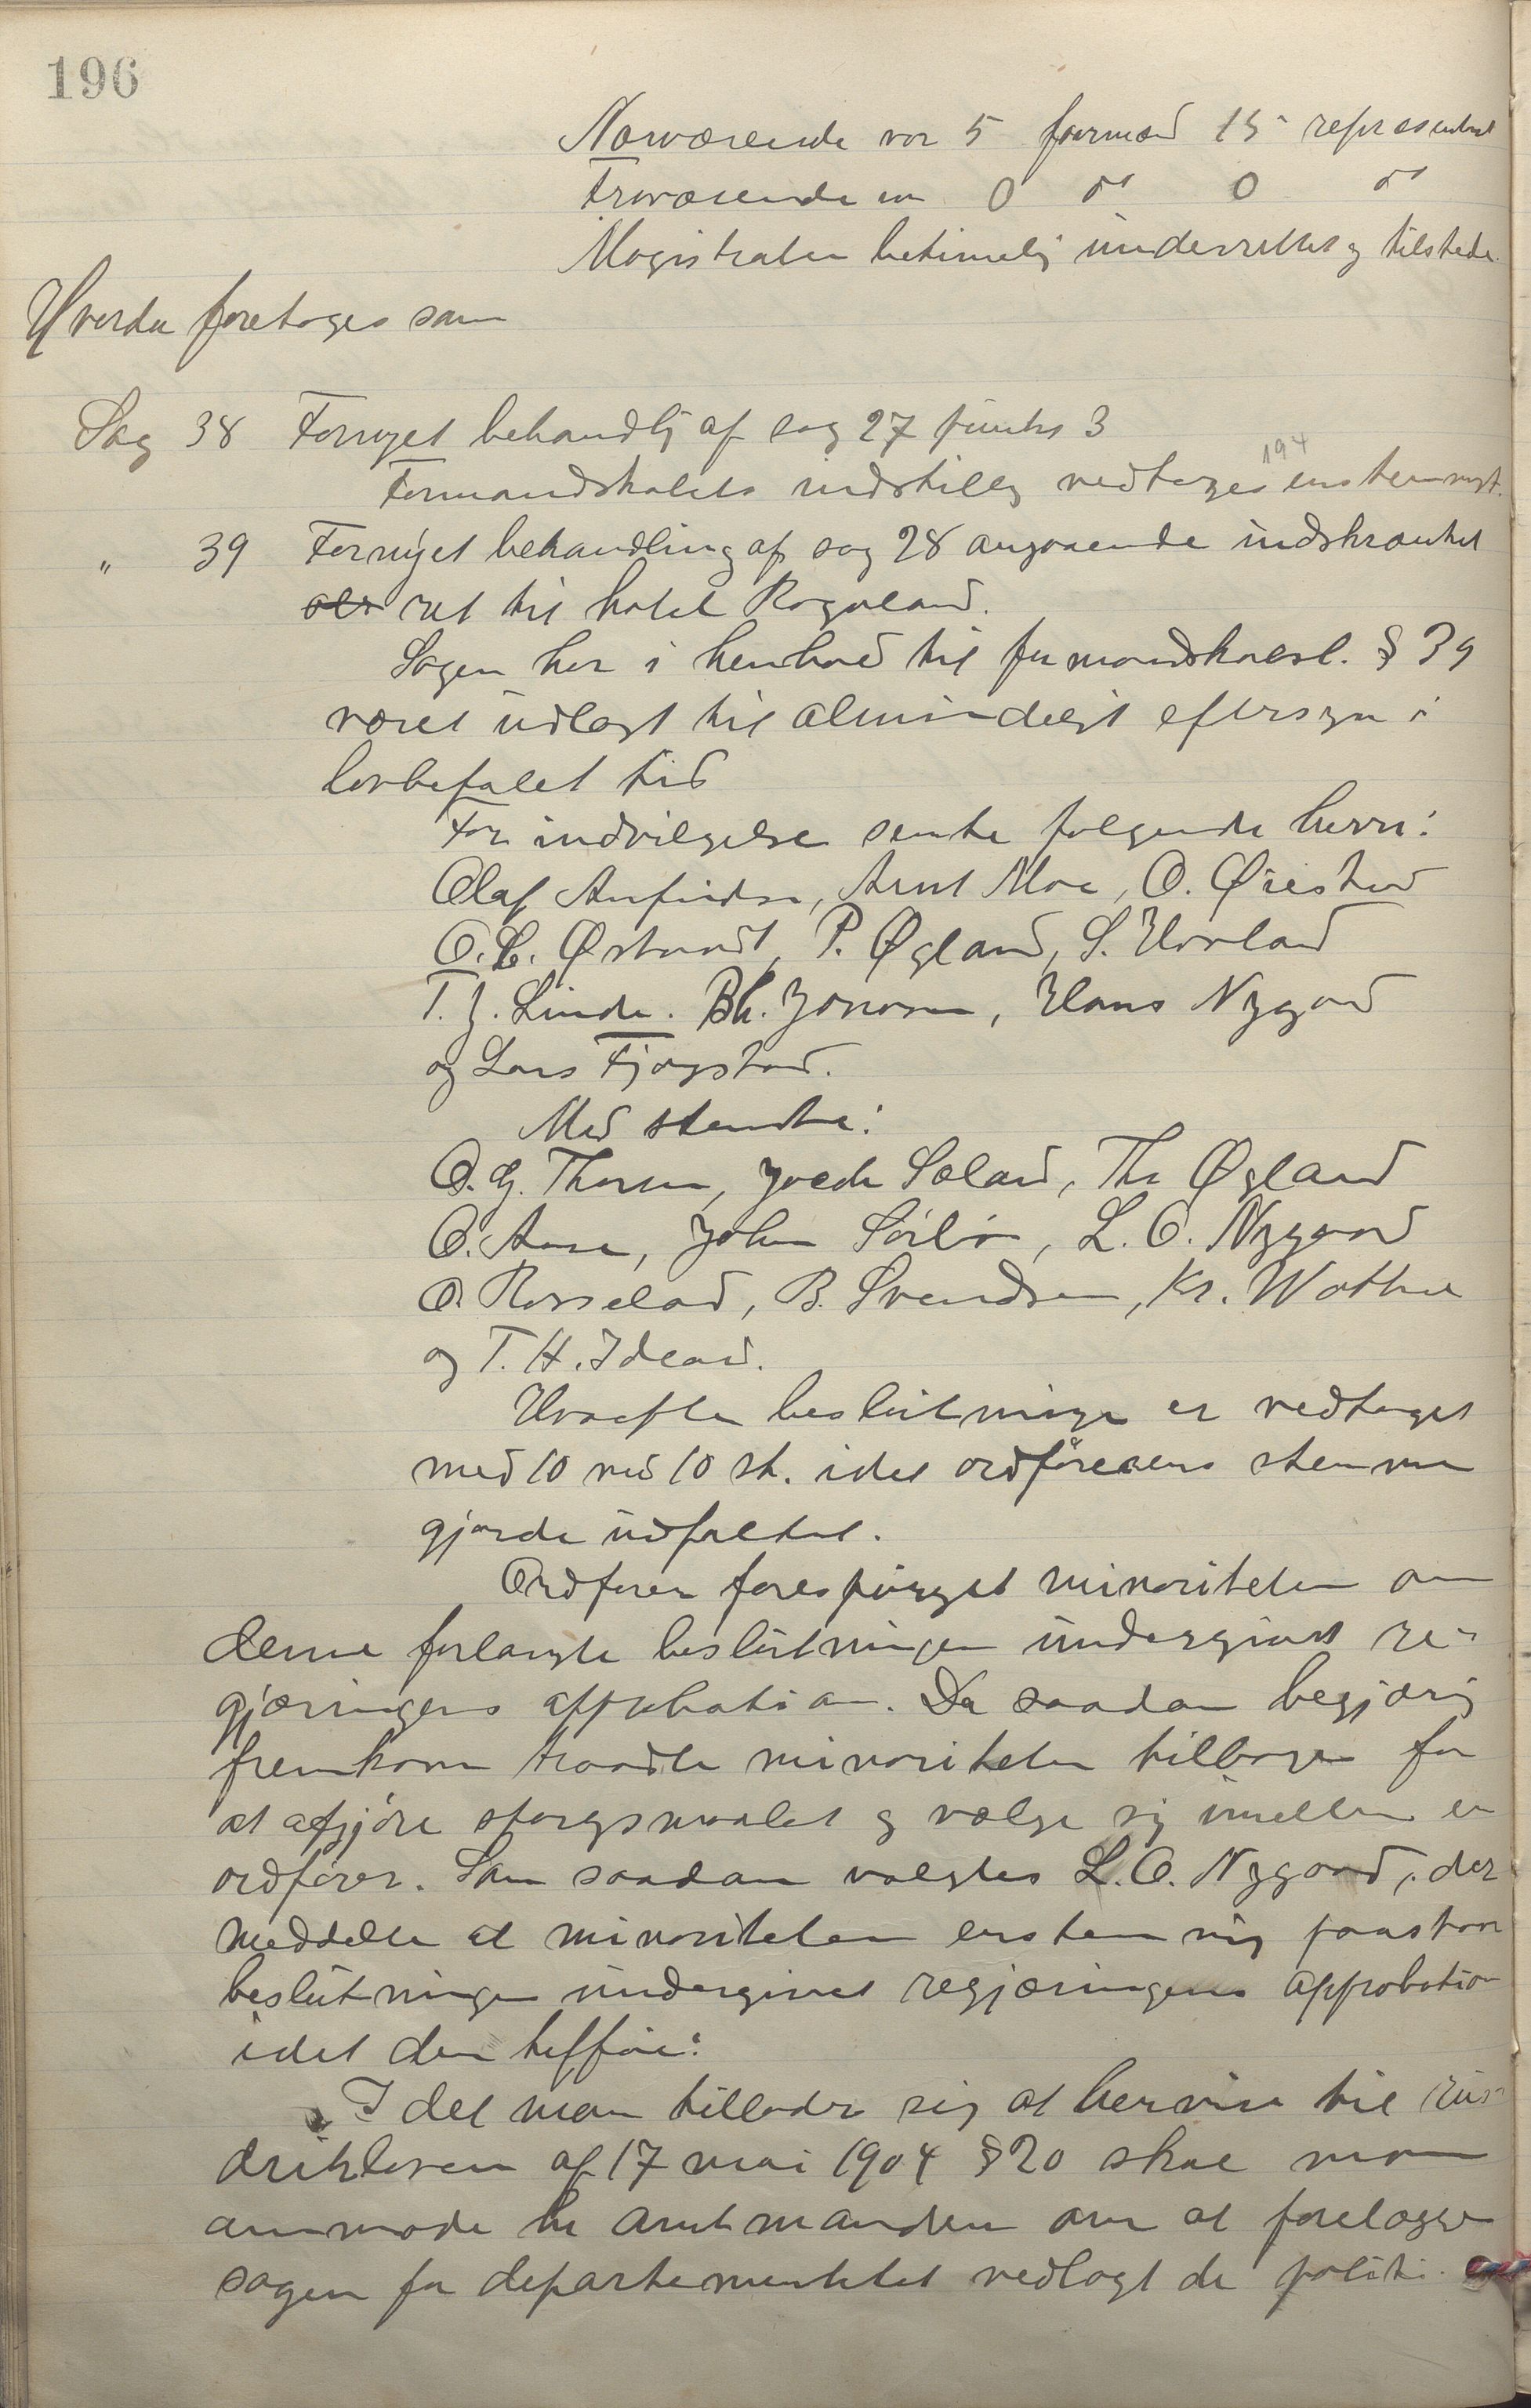 196
Nærværende var 5 formænd 15 repræsentant
Fraværende var 0 do 0 do
Magistraten betimelig underrettet og tilstede.
Hvorda foretoges som
Sag 38 Fornyet behandlg af sag 27 punkt 3
194
Formandskabets indstillg vedtoges enstemmigt.
" 39 Fornyet behandling af sag 28 angaaende indskrænket
ret til hotel Rogaland.
Sagen har i henhold til formandskabsl. § 39
været udlagt til almindeligt eftersyn i
lovbefalet tid
For indvilgelse stemte følgende herrer:
Olaf Anfindsen, Arnt Moe, O. Øiestad
O. C. Østvoldt, P. Øgland, S. Hovland
T. J. Linde. Bh. Jonasen, Hans Nygaard
og Lars Fjogstad.
Mod stemte:
O. G. Thorsen, Joeck Soland, Th Øgland
O. Aase, John Sörbö, L. O. Nygaard
O. Rosseland, B. Svendsen, Kr. Wathne
og T. H. Ideland.
Hvorefter beslutningen er vedtaget
med 10 mod 10 st. idet ordførerens stemme
gjorde udfaldet.
Ordfører forespurgte minoriteten om
denne forlangte beslutningen undergivet re-
gjæringens approbation. Da saadan begjæring
fremkom traadte minoriteten tilbage for
at afgjøre spørgsmaalet og vælge sig imellem en
ordfører. Som saadan valgtes L. O. Nygaard, der
meddelte at minoriteten enstemmig paastaar
beslutningen undergivet regjæringens approbation
idet den tilføie:
I det man tillader sig at henvise til rus-
drikloven af 17 mai 1904 § 20 skal man
anmode hr amtmanden om at forelægge
sagen for departementet vedlagt de politi-